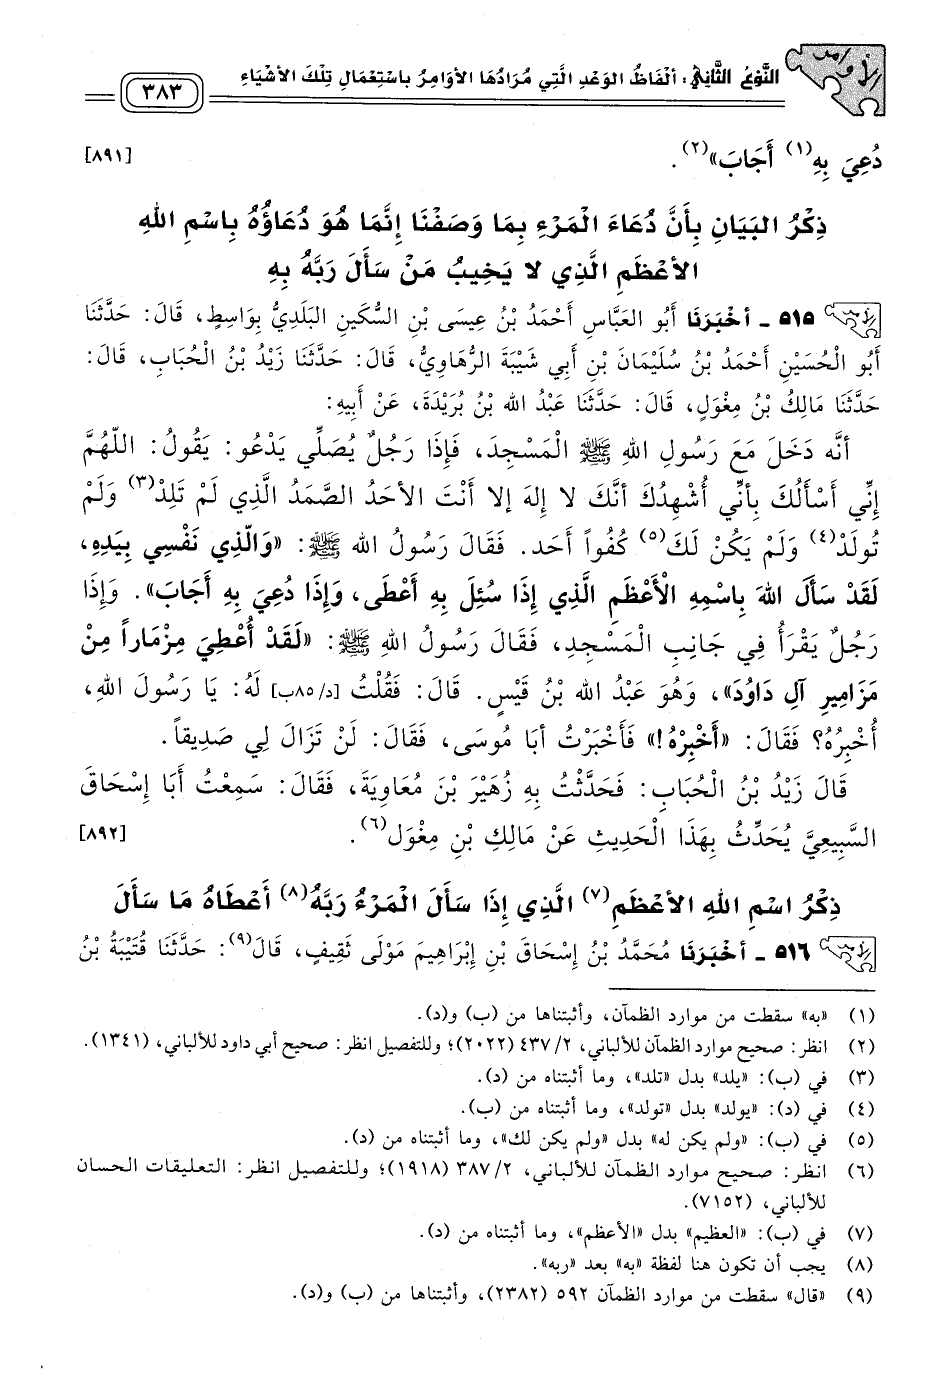 الأوامر
النَّوْعُ الثَّانِي: أَلْفَاظُ الوَعْدِ الَّتِي مُرَادُهَا الأَوَامِرُ بِاسْتِعْمَالِ تِلْكَ الأَشْيَاءِ
٣٨٣
دُعِيَ بِهِ(١) أَجَابَ»(٢). [٨٩١]
ذِكْرُ البَيَانِ بِأَنَّ دُعَاءَ الْمَرْءِ بِمَا وَصَفْنَا إِنَّمَا هُوَ دُعَاؤُهُ بِاسْمِ اللهِ
الأَعْظَمِ الَّذِي لا يَخِيبُ مَنْ سَأَلَ رَبَّهُ بِهِ
٥١٥ ـ أخْبَرَنَا أَبُو العَبَّاسِ أَحْمَدُ بْنُ عِيسَى بْنِ السُّكَينِ البَلَدِيُّ بِوَاسِطٍ، قَالَ: حَدَّثَنَا
أَبُو الْحُسَيْنِ أَحْمَدُ بْنُ سُلَيْمَانَ بْنِ أَبِي شَيْبَةَ الرُّهَاوِيُّ، قَالَ: حَدَّثَنَا زَيْدُ بْنُ الْحُبَابِ، قَالَ:
حَدَّثَنَا مَالِكُ بْنُ مِغْوَلٍ، قَالَ: حَدَّثَنَا عَبْدُ الله بْنُ بُرَيْدَةَ، عَنْ أَبِيهِ:
أنَّه دَخَلَ مَعَ رَسُولِ اللهِ ﷺ الْمَسْجِدَ، فَإِذَا رَجُلٌ يُصَلِّي يَدْعُو: يَقُولُ: اللَّهُمَّ
إِنِّي أَسْأَلُكَ بِأَنِّي أُشْهِدُكَ أنَّكَ لا إِلهَ إلا أَنْتَ الأحَدُ الصَّمَدُ الَّذِي لَمْ تَلِدْ(٣) وَلَمْ
تُولَدْ(٤) وَلَمْ يَكُنْ لَكَ(٥) كُفُواً أَحَد. فَقَالَ رَسُولُ الله ﷺ: «وَالَّذِي نَفْسِي بِيَدِهِ،
لَقَدْ سَأَلَ اللهَ بِاسْمِهِ الْأَعْظَمِ الَّذِي إِذَا سُئِلَ بِهِ أَعْطَى، وَإِذَا دُعِيَ بِهِ أَجَابَ». وَإِذَا
رَجُلٌ يَقْرَأُ فِي جَانِبِ الْمَسْجِدِ، فَقَالَ رَسُولُ اللهِ ﷺ: «لَقَدْ أُعْطِيَ مِزْمَاراً مِنْ
مَزَامِيرِ آلِ دَاوُدَ»، وَهُوَ عَبْدُ الله بْنُ قَيْسٍ. قَالَ: فَقُلْتُ [د/٨٥ب] لَهُ: يَا رَسُولَ اللهِ،
أُخْبِرُهُ؟ فَقَالَ: «أَخْبِرْهُ!» فَأَخْبَرْتُ أبَا مُوسَى، فَقَالَ: لَنْ تَزَالَ لِي صَدِيقاً.
قَالَ زَيْدُ بْنُ الْحُبَابِ: فَحَدَّثْتُ بِهِ زُهَيْرَ بْنَ مُعَاوِيَةَ، فَقَالَ: سَمِعْتُ أَبَا إِسْحَاقَ
السَّبِيعِيَّ يُحَدِّثُ بِهَذَا الْحَدِيثِ عَنْ مَالِكِ بْنِ مِغْوَلٍ(٦). [٨٩٢]
ذِكْرُ اسْمِ اللهِ الأَعْظَمِ(٧) الَّذِي إِذَا سَأَلَ الْمَرْءُ رَبَّهُ(٨) أَعْطَاهُ مَا سَأَلَ
٥١٦ ـ أخْبَرَنَا مُحَمَّدُ بْنُ إِسْحَاقَ بْنِ إِبْرَاهِيمَ مَوْلَى ثَقِيفٍ، قَالَ(٩): حَدَّثَنَا قُتَيْبَةُ بْنُ
(١) «به» سقطت من موارد الظمآن، وأثبتناها من (ب) و(د).
(٢) انظر: صحيح موارد الظمآن للألباني، ٤٣٧/٢ (٢٠٢٢)؛ وللتفصيل انظر: صحيح أبي داود للألباني، (١٣٤١).
(٣) في (ب): «يلد» بدل «تلد»، وما أثبتناه من (د).
(٤) في (د): «يولد» بدل «تولد»، وما أثبتناه من (ب).
(٥) في (ب): «ولم يكن له» بدل «ولم يكن لك»، وما أثبتناه من (د).
(٦) انظر: صحيح موارد الظمآن للألباني، ٣٨٧/٢ (١٩١٨)؛ وللتفصيل انظر: التعليقات الحسان
للألباني، (٧١٥٢).
(٧) في (ب): «العظيم» بدل «الأعظم»، وما أثبتناه من (د).
(٨) يجب أن تكون هنا لفظة «به» بعد «ربه».
(٩) «قال» سقطت من موارد الظمآن ٥٩٢ (٢٣٨٢)، وأثبتناها من (ب) و(د).